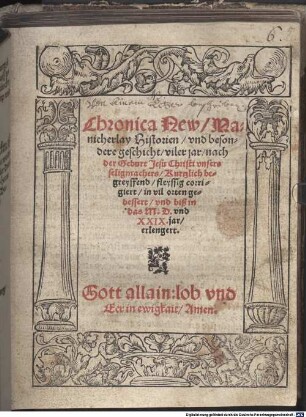 6
Chronica New/ Ma-
nicherlay Historien/ vnd beson-
dere geschicht/ viler jar/ nach
der Geburt Jesu Christi vnsers
seligmachers/ Kurtzlich be-
greyffend/ fleyssig corri-
giert/ in vil orten ge-
bessert/ vnd biß in
das M. D. vnd
XXIX. jar/
erlengert.
Gott allain: lob vnd
Eer in ewigkait/ Amen.